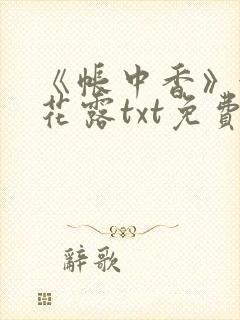 《帐中香》
花露txt免費
辭歌